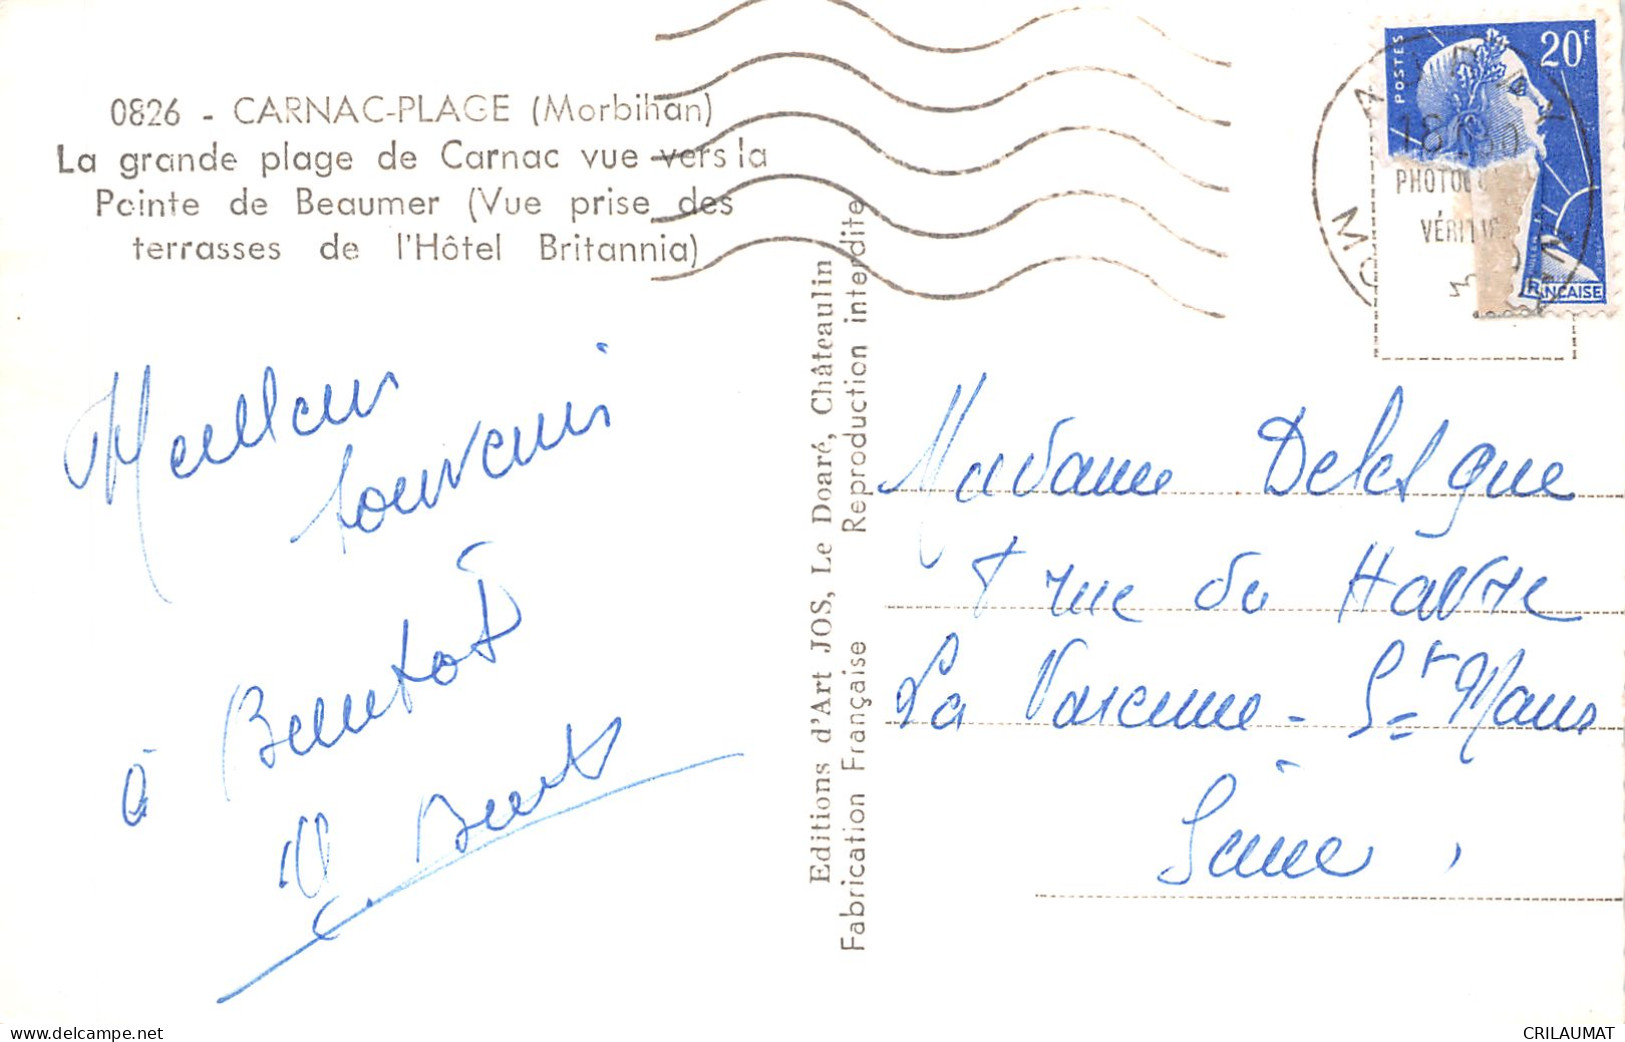 0826 - CARNAC-PLAGE (Morbihan)
La grande plage de Carnac vue vers la
Pointe de Beaumer (Vue prise des
terrasses de l'Hôtel Britannia)
POSTES
20F
18 30
VÉRI
MO
Meilleurs
souvenirs
à Bientôt
Editions d'Art JOS, Le Doaré, Châteaulin
Fabrication Française Reproduction interdite
Madame
rue du Havre
La Varenne - St Maur
Seine
delcampe.net
CRILAUMAT